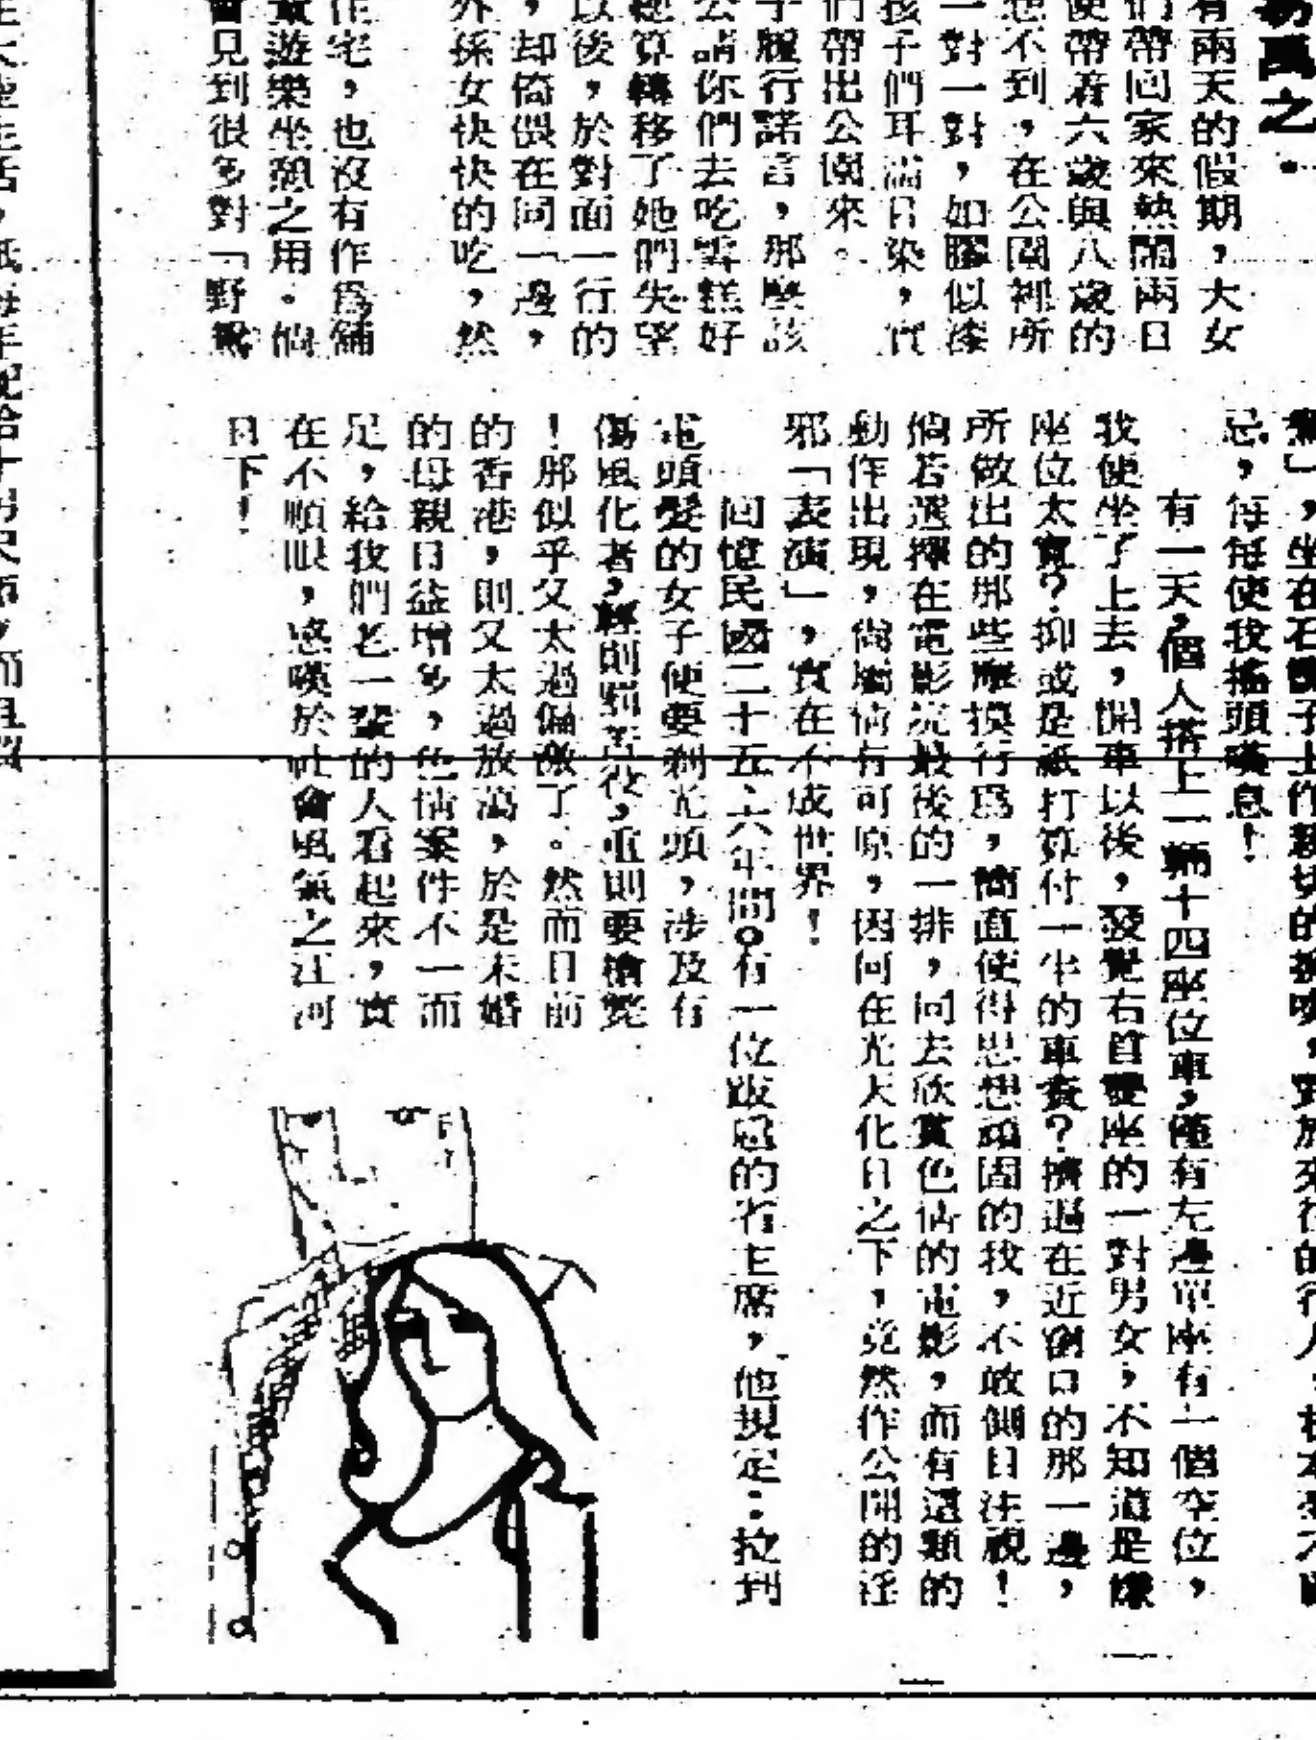 易風之：
有兩天的假期，大女
們帶回家來熱鬧兩日
便帶着六歲與八歲的
想不到，在公園裡所
一對一對，如膠似漆
孩子們耳濡目染，實
們帶出公園來。
子履行諾言，那麼該
公請你們去吃雪糕好
總算轉移了她們失望
以後，於對面一行的
，却倚偎在同一邊，
外孫女快快的吃，然
住宅，也沒有作爲舖
遊樂坐憩之用。倘
會見到很多對「野鴛
鴦」，坐在石凳子上作親切的
忌，每每使我搖頭嘆息！
有一天，個人搭上一輛十四座位車，僅有左邊單座有一個空位，
我便坐了上去，開車以後，發覺右首雙座的一對男女，不知道是嫌
座位太寬？抑或是祇打算付一半的車資？擠逼在近窗口的那一邊，
所做出的那些摩摸行爲，簡直使得思想頑固的我，不敢側目注視！
倘若選擇在電影院最後的一排，同去欣賞色情的電影，而有這類的
動作出現，尙屬情有可原，因何在光天化日之下，竟然作公開的淫
邪「表演」，實在不成世界！
回憶民國二十五、六年間，有一位跋扈的省主席，他規定：拉到
電頭髮的女子便要剃光頭，涉及有
傷風化者，輕則罰苦役，重則要槍斃
！那似乎又太過偏激了。然而目前
的香港，則又太過放蕩，於是未婚
的母親日益增多，色情案件不一而
足，給我們老一輩的人看起來，實
在不順眼，感嘆於社會風氣之江河
日下！